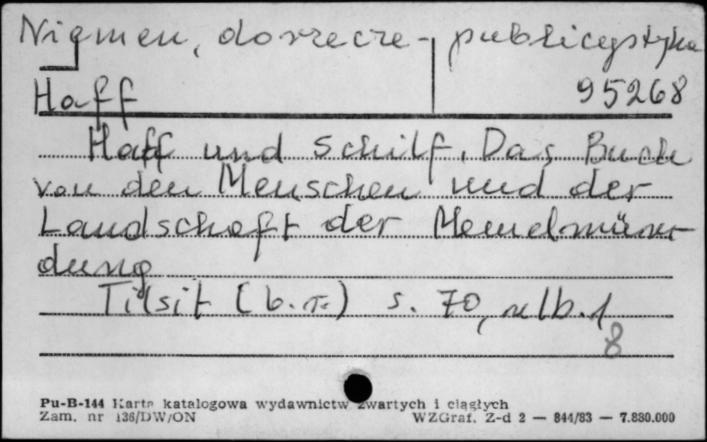 Niemen, dorzecze - publicystyka
Haff 95268
Haff und Schilf. Das Buch
von den Menschen und der
Landschaft der Memelmün-
dung
Tilsit (b.r.) s. 70, nlb. 1
8
Pu-B-144 Karta katalogowa wydawnictw zwartych i ciągłych
Zam. nr 136/DW/ON WZGraf. Z-d 2 — 844/83 — 7.880.000